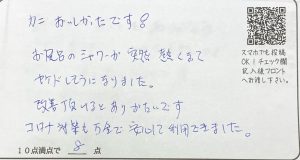 カニ おいしかったです！
お風呂のシャワーが突然 熱くなて
ヤケドしそうになりました。
改善頂けるとありがたいです
コロナ対策も万全で安心して利用できました。
10点満点で 8 点
スマホでも投稿
OK！チェック欄
記入後フロント
へお渡し下さい。